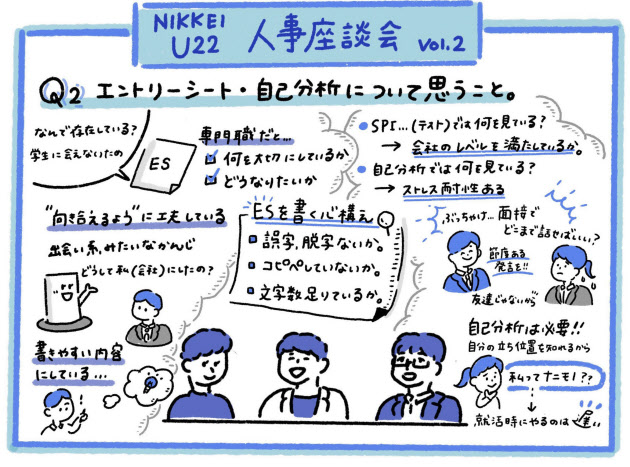 NIKKEI
U22 人事座談会 Vol.2
Q2 エントリーシート・自己分析について思うこと。
なんで存在している?
学生に会えないため
ES
専門職だと…
何を大切にしているか
どうなりたいか
SPI…(テスト)では何を見ている?
→ 会社のレベルを満たしているか。
自己分析では何を見ている?
→ ストレス耐性ある
"向き合えるよう"に工夫している
出会い系みたいなかんじ
どうして私(会社)にしたの?
書きやすい内容
にしている…
ESを書く心構え
誤字,脱字ないか。
コピペしていないか。
文字数足りているか。
ぶっちゃけ… 面接で
どこまで話せばいい?
節度ある
発言を!!
友達じゃないから
自己分析は必要!!
自分の立ち位置を知れるから
私ってナニモノ??
就活時にやるのは遅い